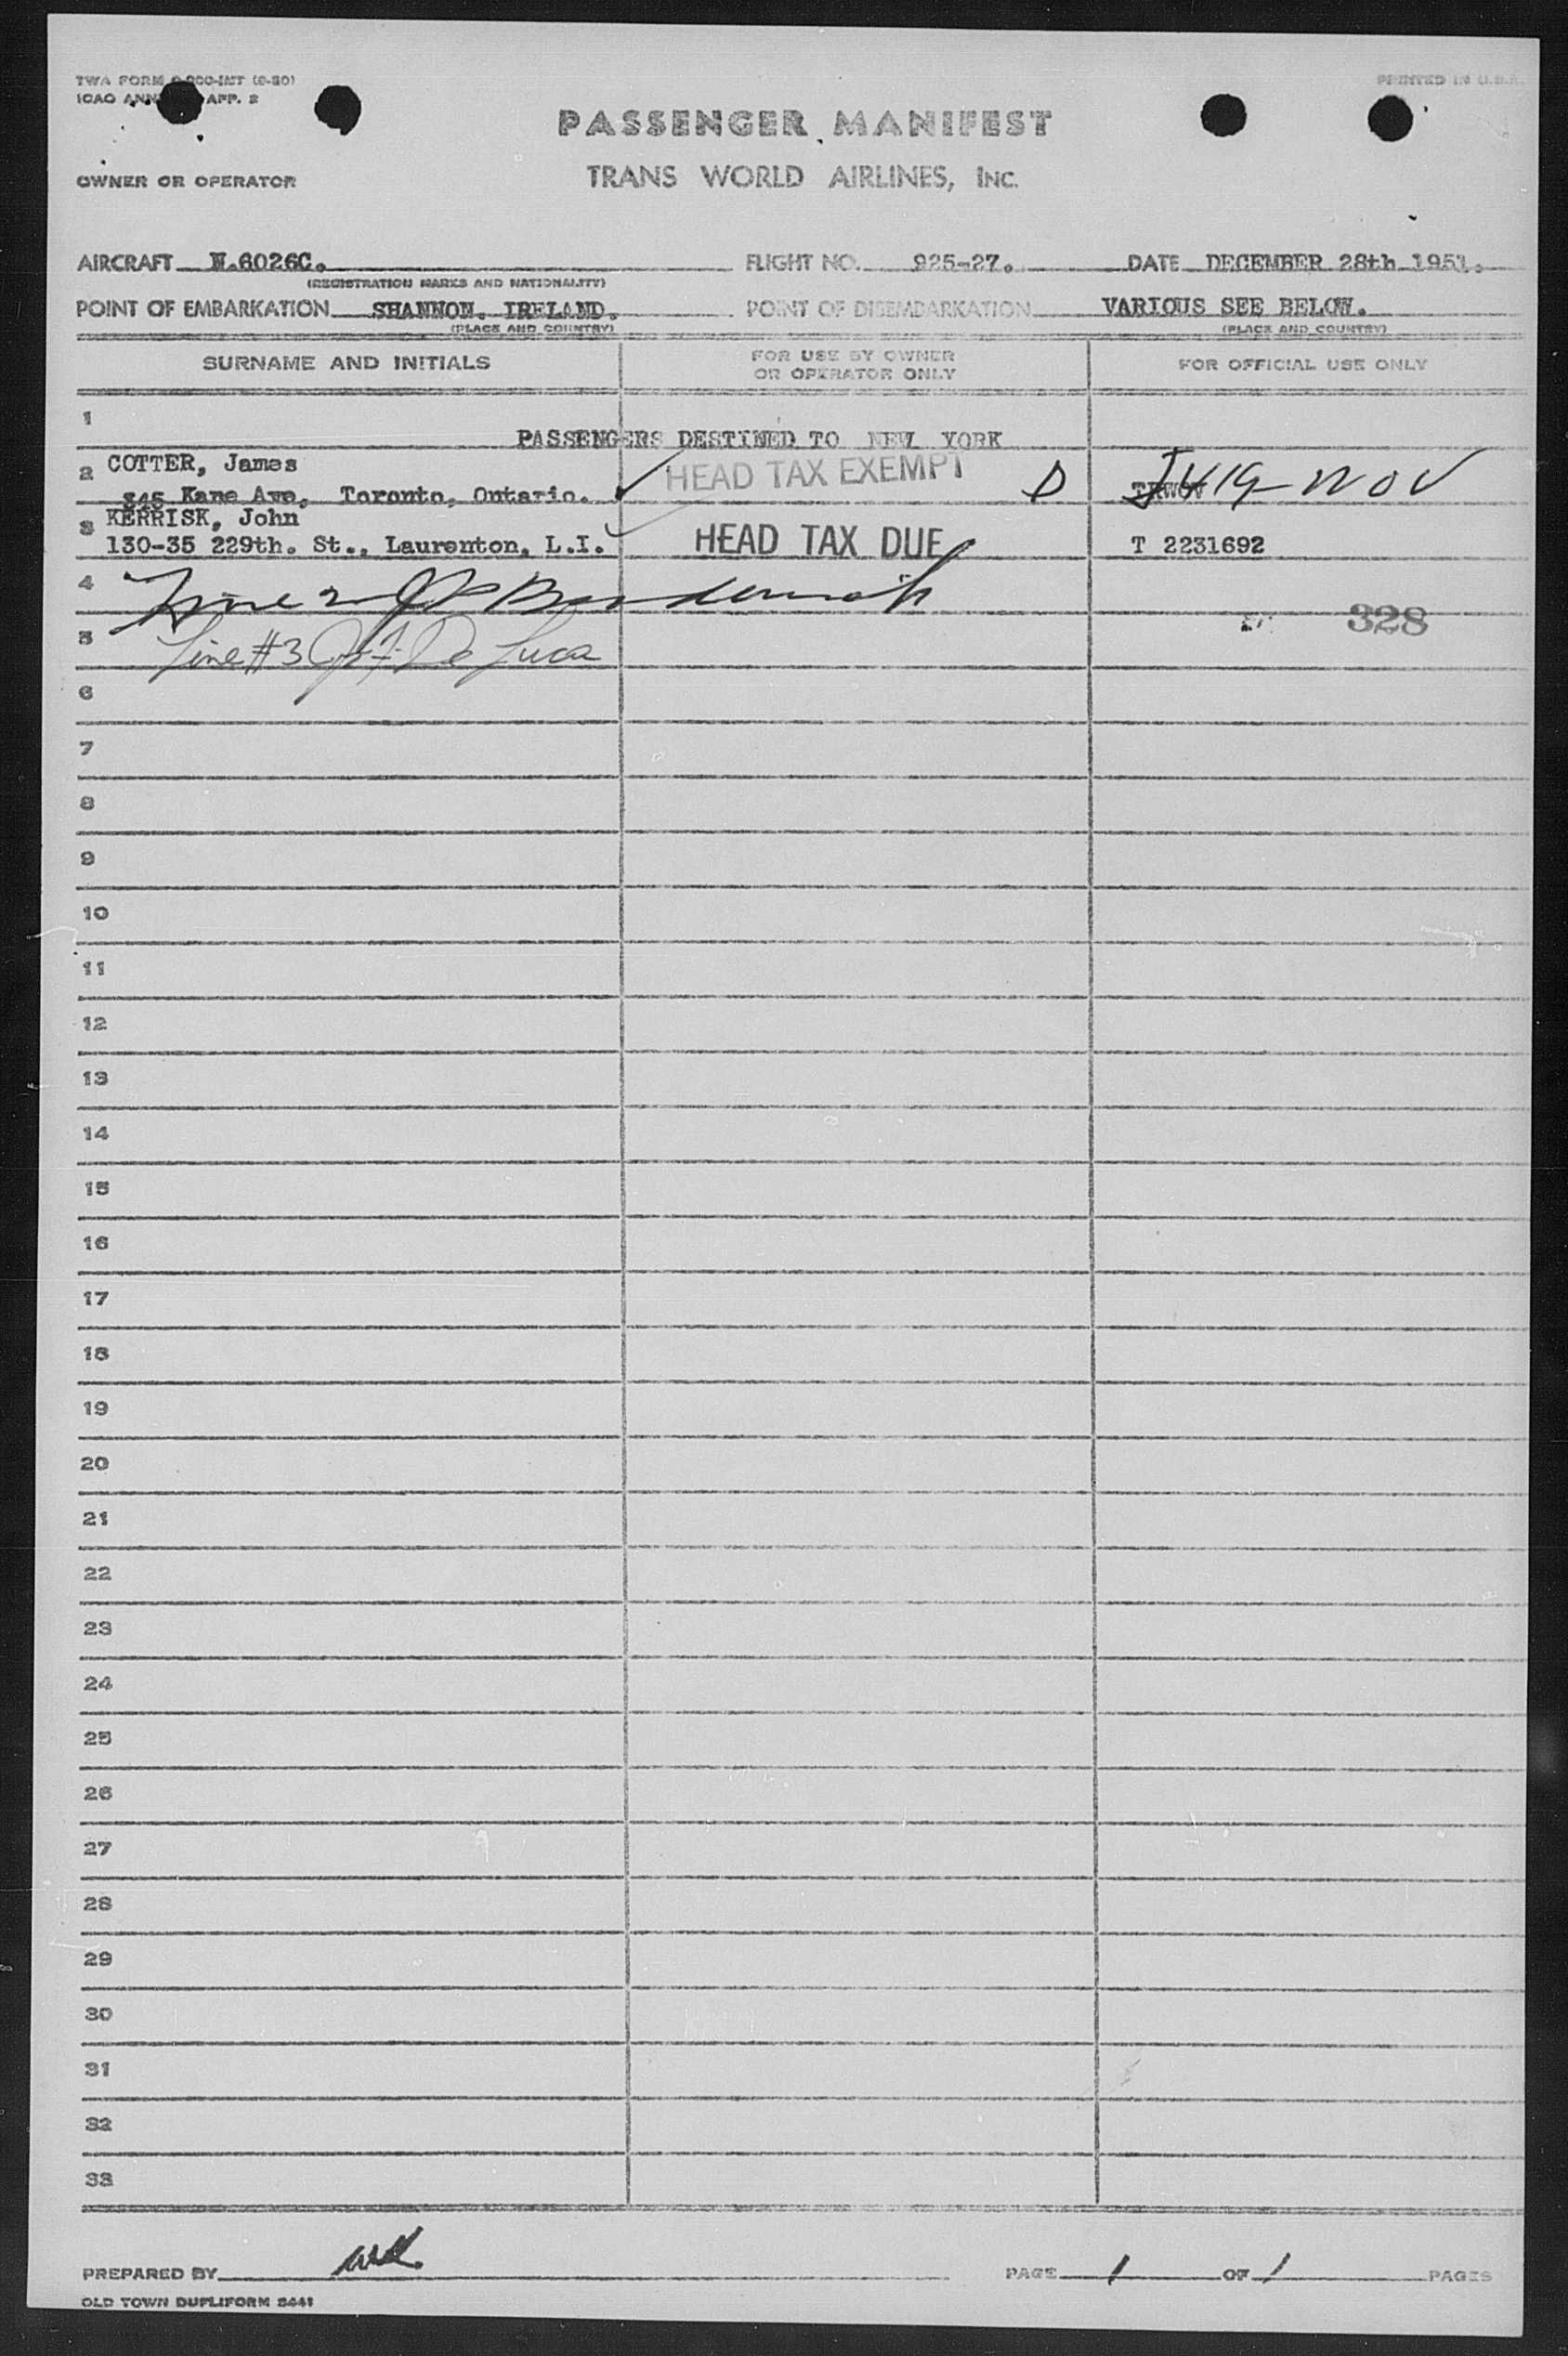 TWA FORM
ICAO ANN APP. 2
PRINTED IN U.S.A.
PASSENGER MANIFEST
OWNER OR OPERATOR
TRANS WORLD AIRLINES, INC.
AIRCRAFT N.6026C. FLIGHT NO. 925-27. DATE DECEMBER 28th 1951.
(REGISTRATION MARKS AND NATIONALITY)
POINT OF EMBARKATION SHANNON. IRELAND. POINT OF DISEMBARKATION VARIOUS SEE BELOW.
(PLACE AND COUNTRY) (PLACE AND COUNTRY)
SURNAME AND INITIALS FOR USE BY OWNER OR OPERATOR ONLY FOR OFFICIAL USE ONLY
1
PASSENGERS DESTINED TO NEW YORK
2 COTTER, James HEAD TAX EXEMPT
845 Kane Ave, Toronto, Ontario. D
3 KERRISK, John
130-35 229th. St., Laurenton, L.I. HEAD TAX DUE T 2231692
4 Line 2
328
5 Line #3 J. F. De Luca
6
7
8
9
10
11
12
13
14
15
16
17
18
19
20
21
22
23
24
25
26
27
28
29
30
31
32
33
PREPARED BY PAGE 1 OF 1 PAGES
OLD TOWN DUPLIFORM 8441